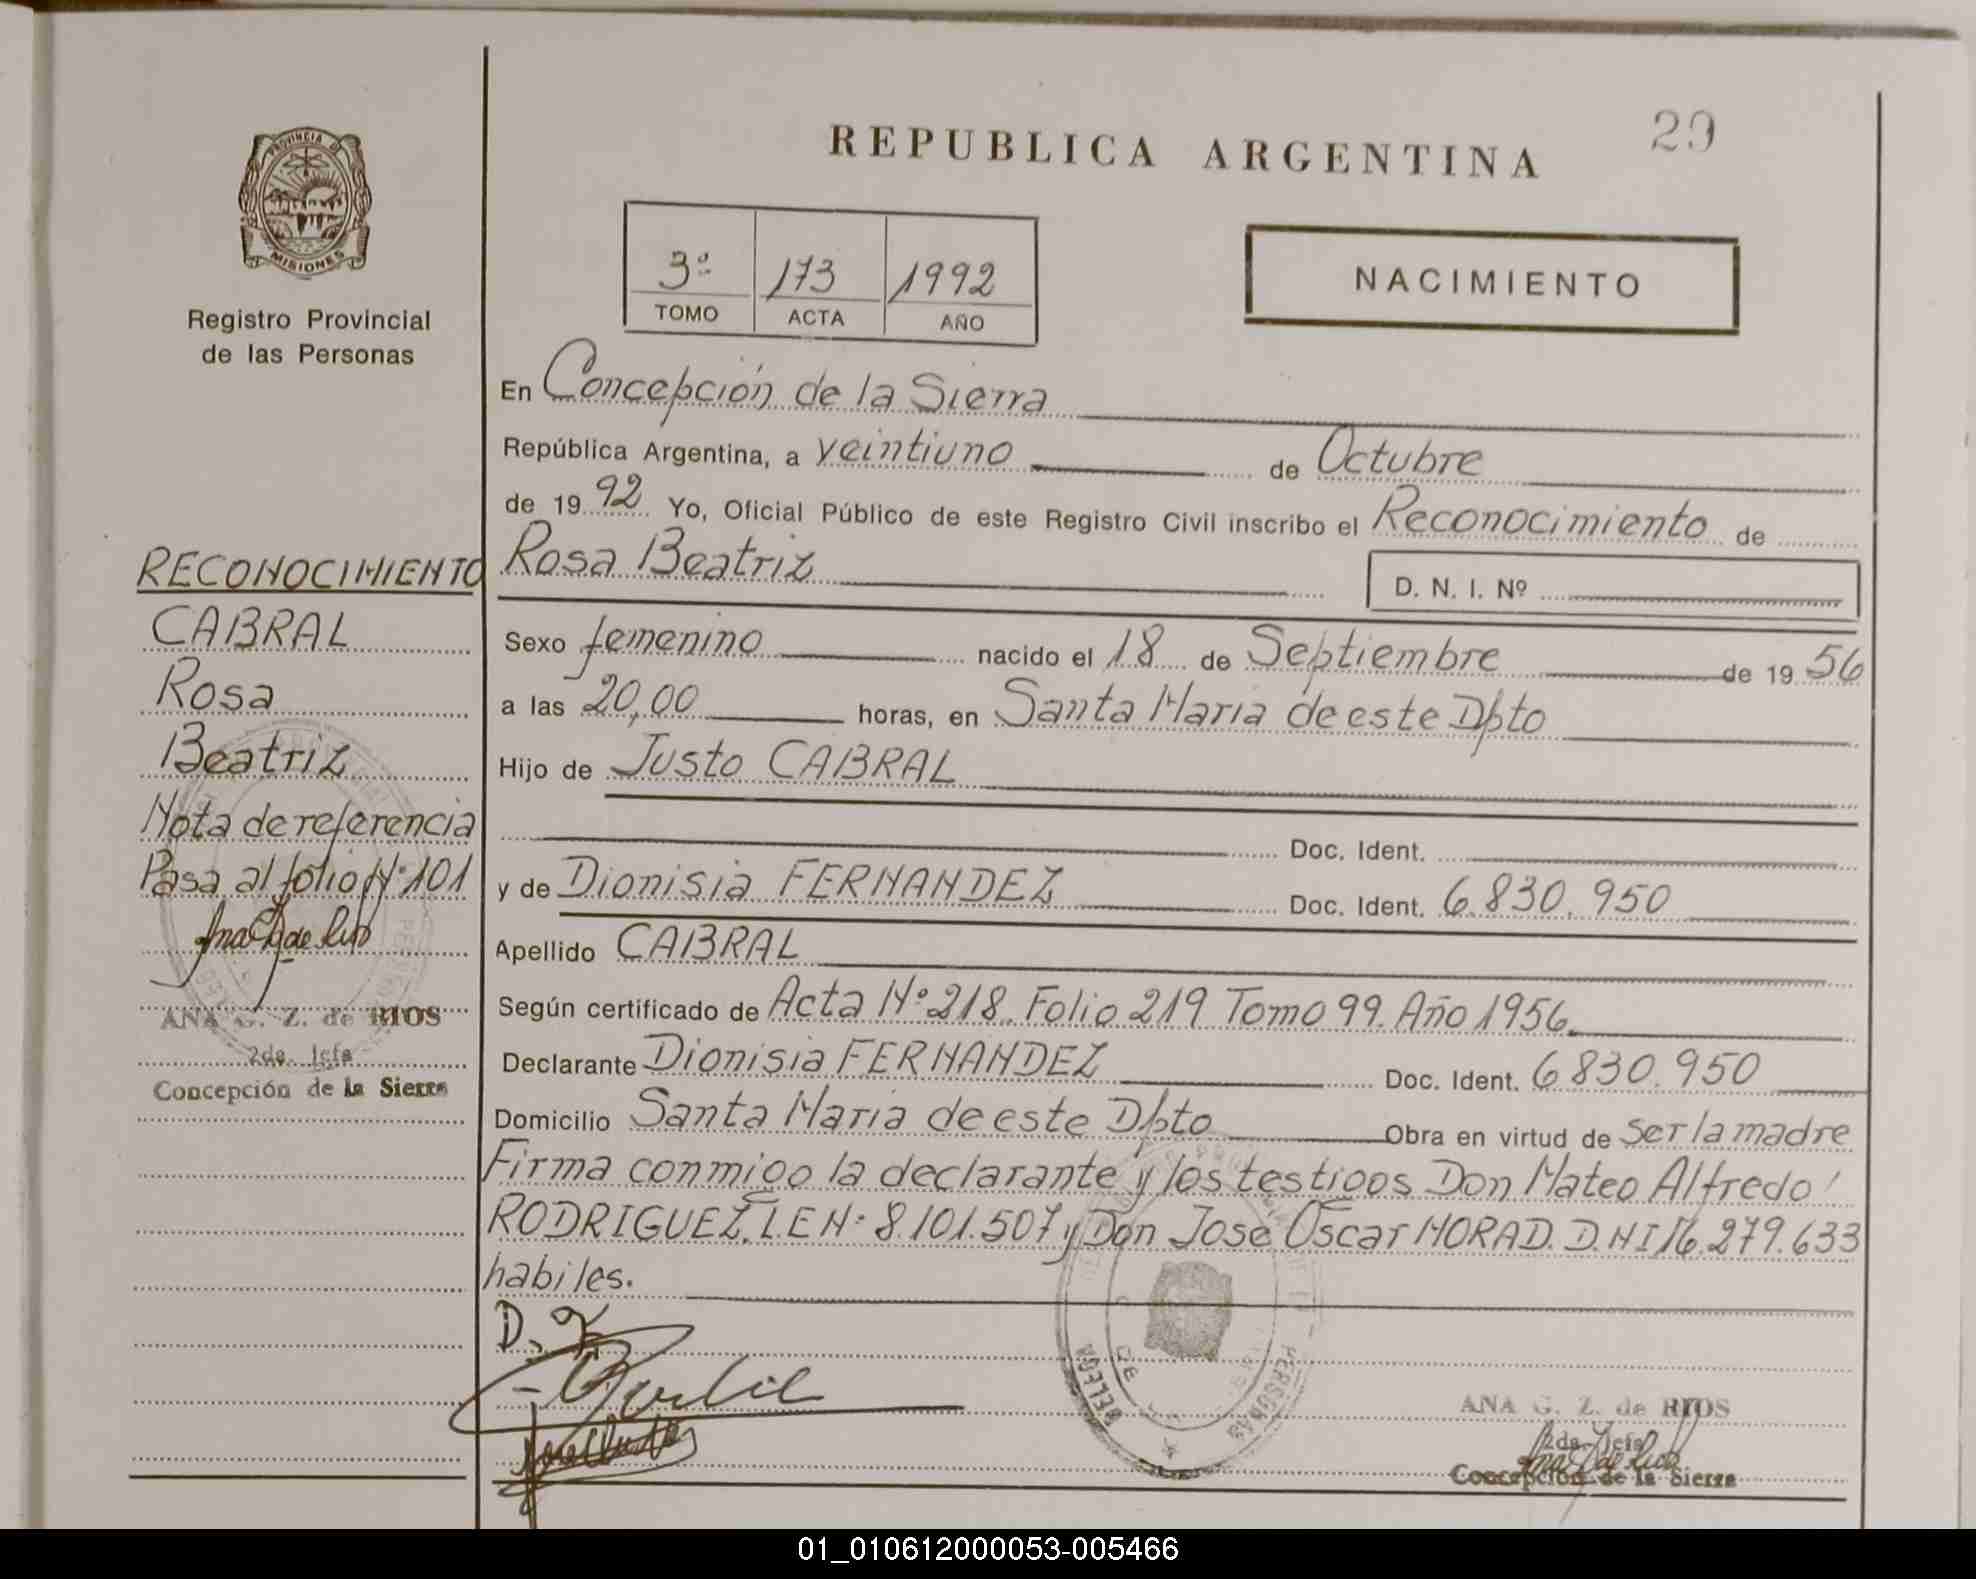 REPUBLICA ARGENTINA
29
PROVINCIA DE
MISIONES
Registro Provincial
de las Personas
3º 173 1992
TOMO ACTA AÑO
NACIMIENTO
En Concepción de la Sierra
República Argentina, a veintiuno de Octubre
de 1992 Yo, Oficial Público de este Registro Civil inscribo el Reconocimiento de
Rosa Beatriz
D. N. I. Nº
Sexo femenino nacido el 18 de Septiembre de 1956
a las 20,00 horas, en Santa Maria de este Dpto
Hijo de Justo CABRAL
Doc. Ident.
y de Dionisia FERNANDEZ Doc. Ident. 6.830.950
Apellido CABRAL
Según certificado de Acta Nº 218. Folio 219 Tomo 99. Año 1956.
Declarante Dionisia FERNANDEZ Doc. Ident. 6830.950
Domicilio Santa Maria de este Dpto Obra en virtud de ser la madre
Firma conmigo la declarante y los testigos Don Mateo Alfredo
RODRIGUEZ. L.E Nº 8.101.507 y Don Jose Oscar MORAD. D.N.I 16.279.633
habiles.
D. F.
RECONOCIMIENTO
CABRAL
Rosa
Beatriz
Nota de referencia
Pasa al folio Nº 101
ANA G. Z. de RIOS
2da. Jefa
Concepción de la Sierra
PERSONAS
ANA G. Z. de RIOS
2da. Jefa
Concepción de la Sierra
01_010612000053-005466